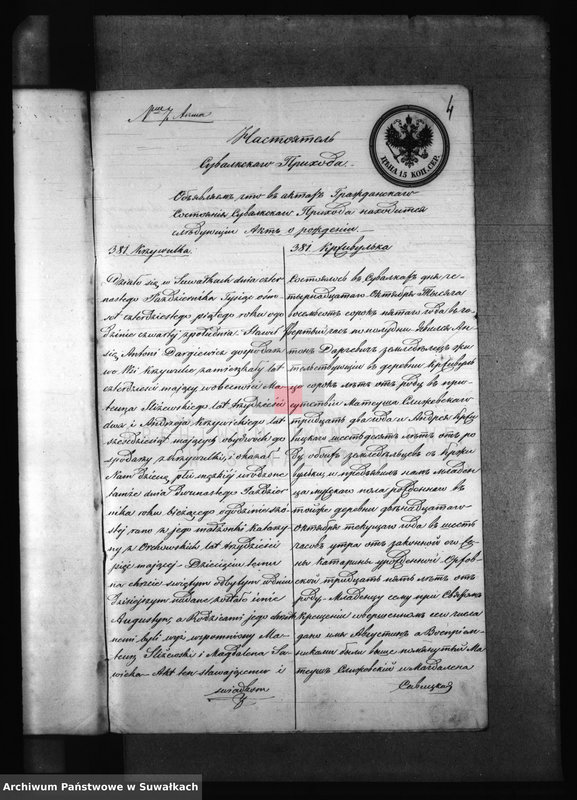 4
ЦѢНА 15 КОП. СЕР.
Настоятель
Сувалкскаго Прихода
Объявляемъ что въ актахъ Гражданскаго
Состоянія Сувалкскаго Прихода находится
слѣдующій Актъ о рожденіи
381 Krzywulka
Działo się w Suwałkach dnia czter
nastego Października Tysiąc ośm
set czterdziestego piątego roku o go
dzinie czwartej z południa. Stawił
się Antoni Dargiewicz gospodarz
we Wsi Krzywulce zamieszkały lat
czterdzieści mający w obecności Ma
teusza Sliżewskiego lat trzydzieści
dwa i Andrzeja Krzywickiego lat
sześćdziesiąt mających obydwóch go
spodarzy z Krzywulki, i okazał
Nam dziecię płci męzkiej urodzone
tamże dnia dwunastego Paździer
nika roku bieżącego o godzinie szó
stej rano z jego małżonki Katarzy
ny z Orchowskich lat trzydzieści
pięć mającej – Dziecięciu temu
na chrzcie świętym odbytym w dniu
dzisiejszym nadane zostało imie
Augustyn, a Rodzicami jego chrzest
nemi byli wyż wspomniony Ma
teusz Sliżewski i Magdalena Sa
wicka – Akt ten stawającemu i
świadkom
381 Крживулька
Состоялось въ Сувалкахъ дня че-
тырнадцатаго Октября Тысяча
восемьсотъ сорокъ пятаго года въ
четвертомъ часъ по полудни. Явился Ан-
тонъ Даргевичъ земледѣлецъ жи
тельствующій въ деревни Крживуль
цѣ сорокъ лѣтъ отъ роду въ при-
сутствіи Матеуша Слижевскаго
тридцать два года и Андрея Крзы
вицкаго шестьдесятъ лѣтъ отъ ро
ду обоихъ земледѣльцевъ съ Крзы
вульки и предъявилъ намъ младен
ца мужскаго пола рожденнаго въ
тойже деревни двѣнадцатаго
Октября текущаго года въ шесть
часовъ утра отъ законной его же
ны Катарины урожденной Орхов-
ской тридцать пять лѣтъ отъ
роду. – Младенцу сему при Святомъ
Крещеніи совершенномъ сего числа
дано имя Августинъ а Воспріем-
никами были выше помянутый Ма
теушъ Слижевскій и Магдалена
Савицкая
Archiwum Państwowe w Suwałkach